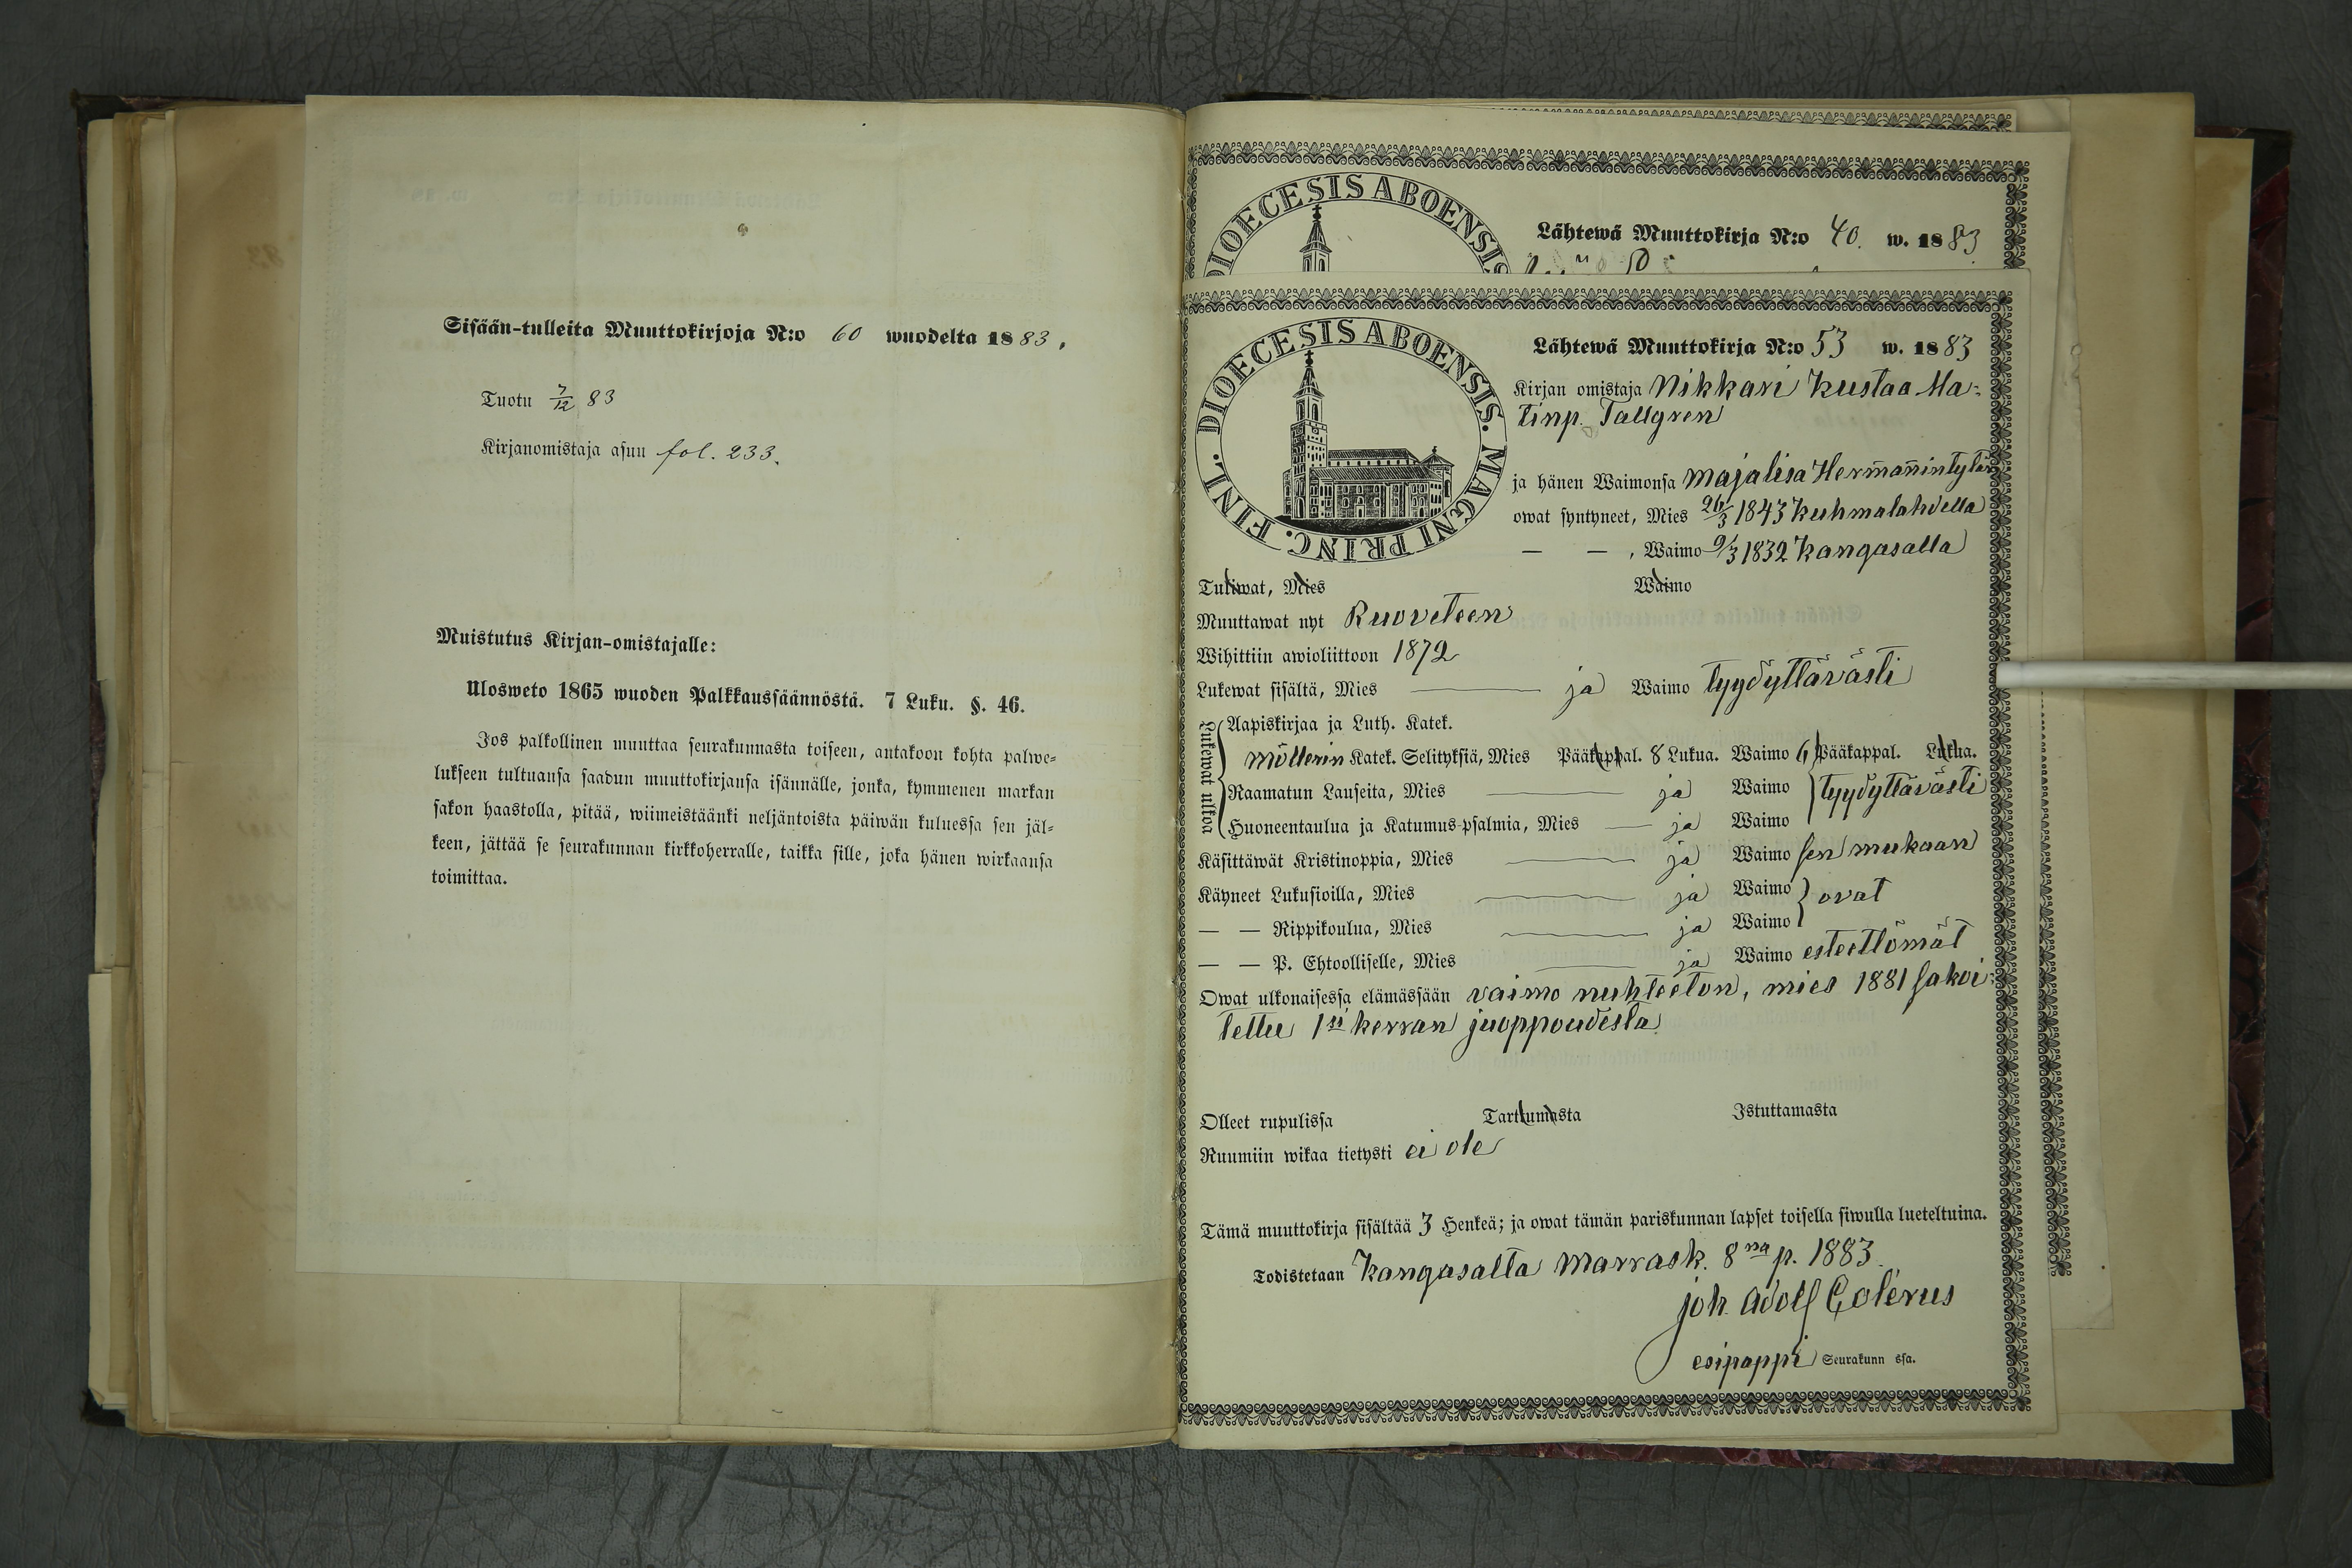 Sisään-tulleita Muuttokirjoja N:o 60 wuodelta 1883,
Tuotu 7/12 83
Kirjanomistaja asuu fol. 233.
Muistutus Kirjan-omistajalle:
Ulosweto 1865 wuoden Palkkaussäännöstä. 7 Luku. §. 46.
Jos palkollinen muuttaa seurakunnasta toiseen, antakoon kohta palwe-
lukseen tultuansa saadun muuttokirjansa isännälle, jonka, kymmenen markan
sakon haastolla, pitää, wiimeistäänki neljäntoista päiwän kuluessa sen jäl-
keen, jättää se seurakunnan kirkkoherralle, taikka sille, joka hänen wirkaansa
toimittaa.
DIOECESIS ABOENSIS
Lähtewä Muuttokirja N:o 40. w. 1883
DIOECESIS ABOENSIS. MAGNI PRINC. FINL.
Lähtewä Muuttokirja N:o 53 w. 1883
Kirjan omistaja Nikkari Kustaa Ma-
tinp. Tallgren
ja hänen Waimonsa Majalisa Hermanintytär
owat syntyneet, Mies 26/3 1843 Kuhmalahdella
— — , Waimo 9/3 1832 Kangasalla
Tuliwat, Mies Waimo
Muuttawat nyt Ruoveteen
Wihittiin awioliittoon 1872
Lukewat sisältä, Mies ja Waimo tyydyttävästi
Lukewat ulkoa
Aapiskirjaa ja Luth. Katek.
Möllerin Katek. Selityksiä, Mies Pääkappal. 8 Lukua. Waimo 6 Pääkappal. Lukua.
Raamatun Lauseita, Mies ja Waimo tyydyttävästi
Huoneentaulua ja Katumus-psalmia, Mies ja Waimo
Käsittäwät Kristinoppia, Mies ja Waimo sen mukaan
Käyneet Lukusioilla, Mies ja Waimo ovat
— — Rippikoulua, Mies ja Waimo
— — P. Ehtoolliselle, Mies ja Waimo esteettömät
Owat ulkonaisessa elämässään vaimo nuhteeton, mies 1881 sakoi-
tettu 1si kerran juoppoudesta
Olleet rupulissa Tarttumasta Istuttamasta
Ruumiin wikaa tietysti ei ole
Tämä muuttokirja sisältää 3 Henkeä; ja owat tämän pariskunnan lapset toisella siwulla lueteltuina.
Todistetaan Kangasalta Marrask. 8na p. 1883.
Joh. Adolf Colérus
esipappi Seurakunn ssa.